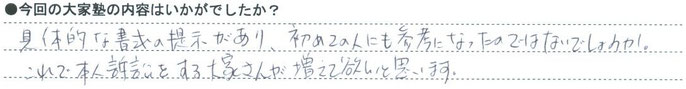 ●今回の大家塾の内容はいかがでしたか？
具体的な書式の提示があり、初めての人にも参考になったのではないでしょうか。
これで本人訴訟をする大家さんが増えて欲しいと思います。